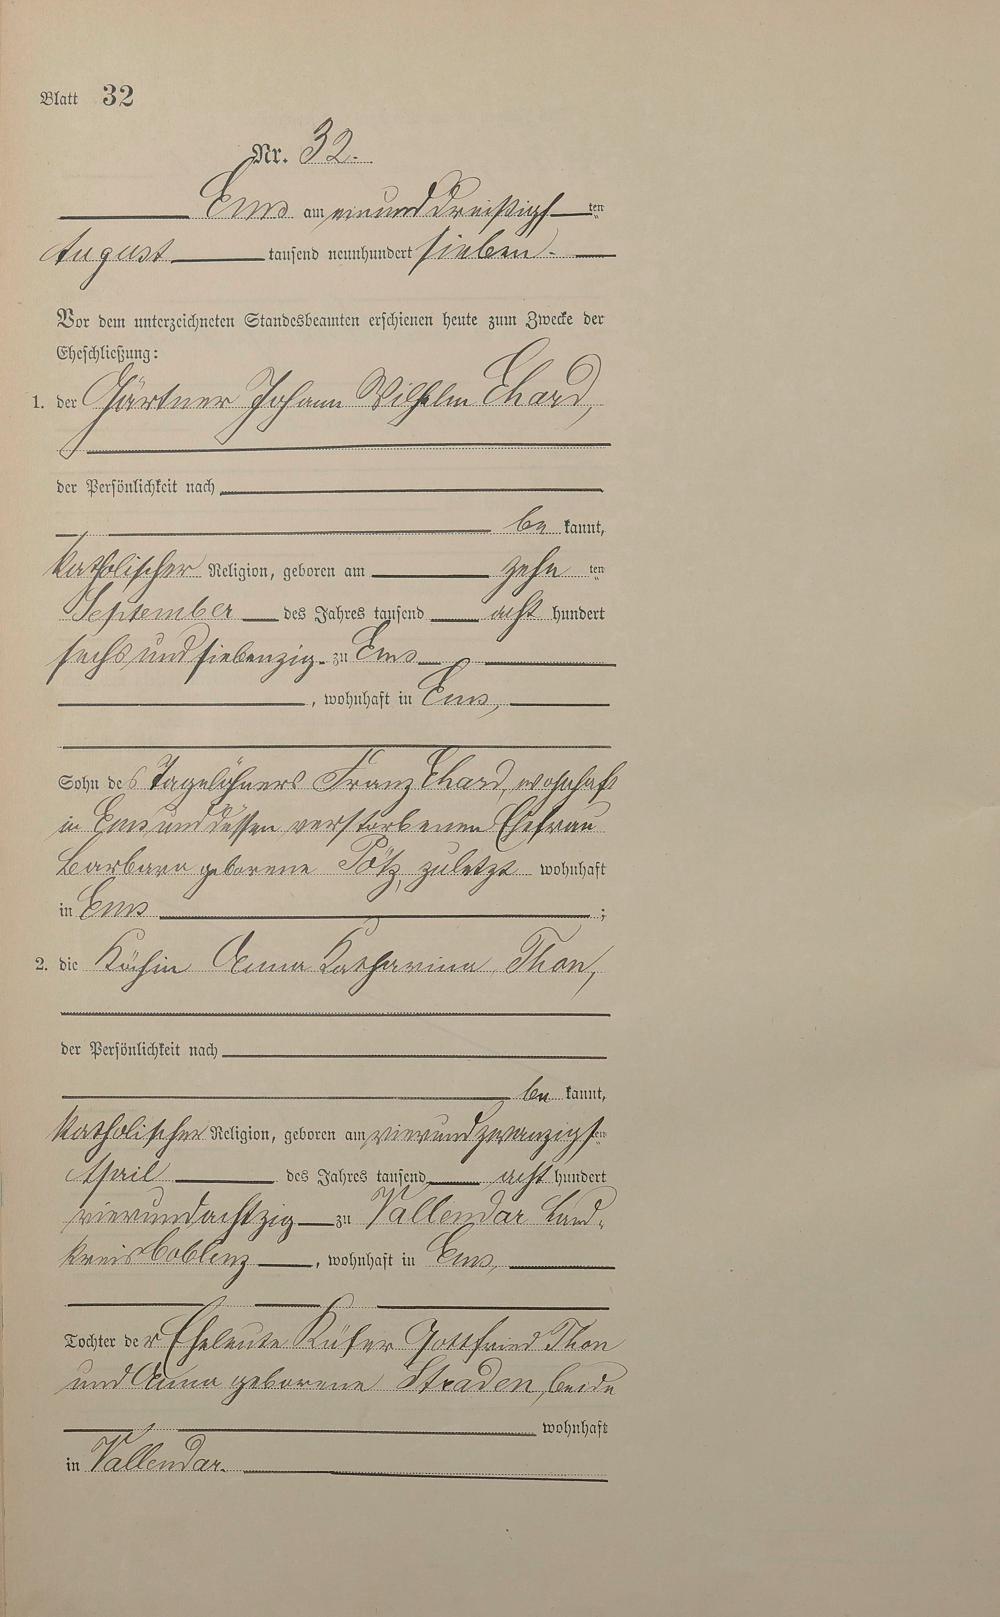 Blatt 32
Nr. 32.
Ems am einunddreißigsten
August tausend neunhundert sieben.
Vor dem unterzeichneten Standesbeamten erschienen heute zum Zwecke der
Eheschließung:
1. der Gärtner Johann Wilhelm Ehard,
der Persönlichkeit nach
be kannt,
katholischer Religion, geboren am zehn ten
September des Jahres tausend acht hundert
sechsundsiebenzig zu Ems
, wohnhaft in Ems,
Sohn des Tagelöhners Franz Ehard, wohnhaft
in Ems und dessen verstorbenen Ehefrau
Barbara geborene Pötz, zuletzt wohnhaft
in Ems ;
2. die Köchin Anna Katharina Thon,
der Persönlichkeit nach
be kannt,
katholischer Religion, geboren am vierundzwanzigsten
April des Jahres tausend acht hundert
vierundachtzig zu Vallendar Land-
kreis Coblenz, wohnhaft in Ems,
Tochter der Eheleute Küfer Gottfried Thon
und Anna geborene Straden, beide
wohnhaft
in Vallendar.